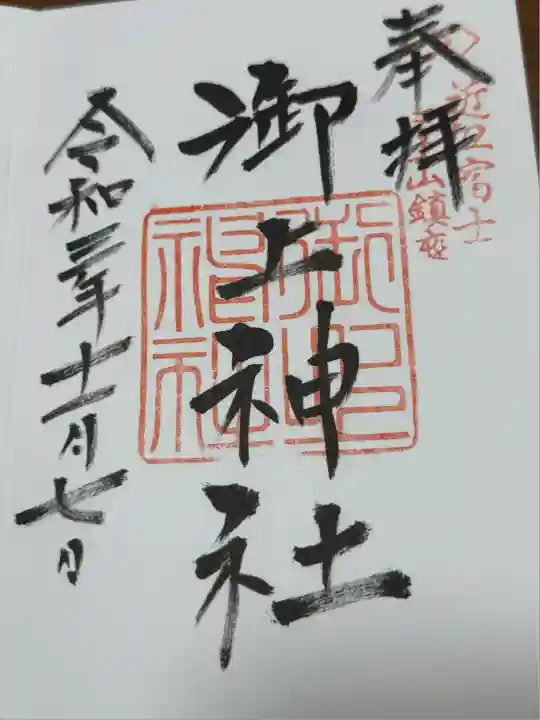 奉拝
近江富士
山鎮座
御上神社
令和三年十一月七日